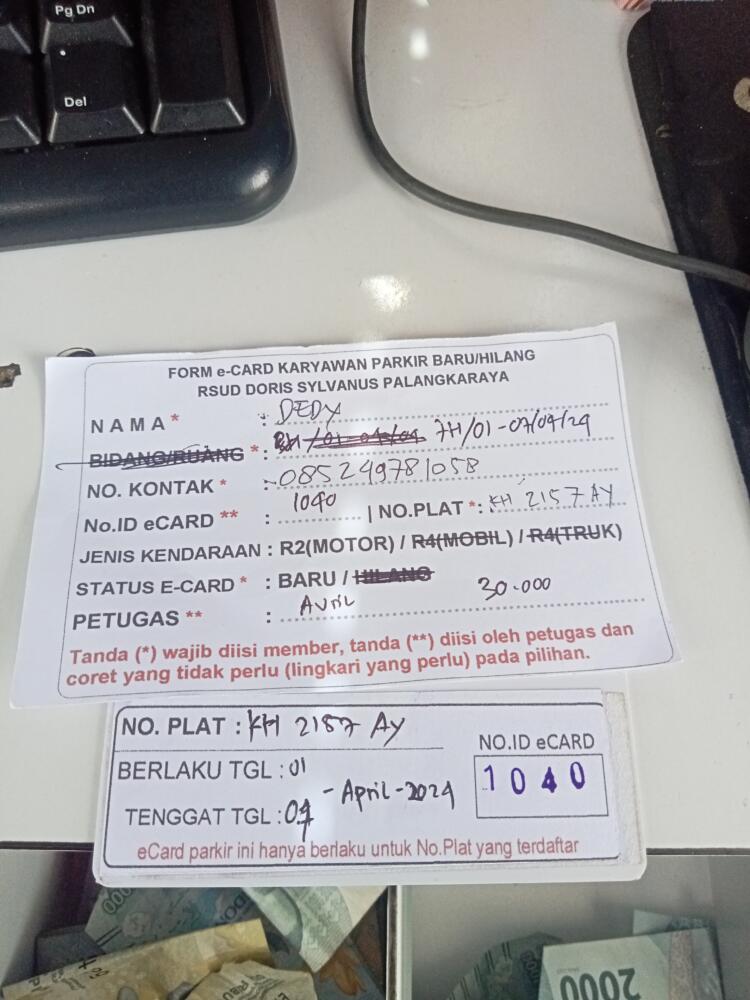 Pg Dn
Del
FORM e-CARD KARYAWAN PARKIR BARU/HILANG
RSUD DORIS SYLVANUS PALANGKARAYA
NAMA * : DEDY
BIDANG/RUANG * : 7H/01-07/04/24
NO. KONTAK * : 085249781058
No.ID eCARD ** : 1040 | NO.PLAT * : KH 2157 AY
JENIS KENDARAAN : R2(MOTOR) / R4(MOBIL) / R4(TRUK)
STATUS E-CARD * : BARU / HILANG
PETUGAS ** : Avril 30.000
Tanda (*) wajib diisi member, tanda (**) diisi oleh petugas dan
coret yang tidak perlu (lingkari yang perlu) pada pilihan.
NO. PLAT : KH 2157 AY
NO.ID eCARD
1040
BERLAKU TGL : 01
- April - 2024
TENGGAT TGL : 07
eCard parkir ini hanya berlaku untuk No.Plat yang terdaftar
2000